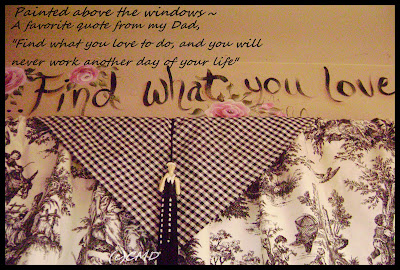 Painted above the windows ~
A favorite quote from my Dad,
"Find what you love to do, and you will
never work another day of your life"
Find what you love
(c)CMD